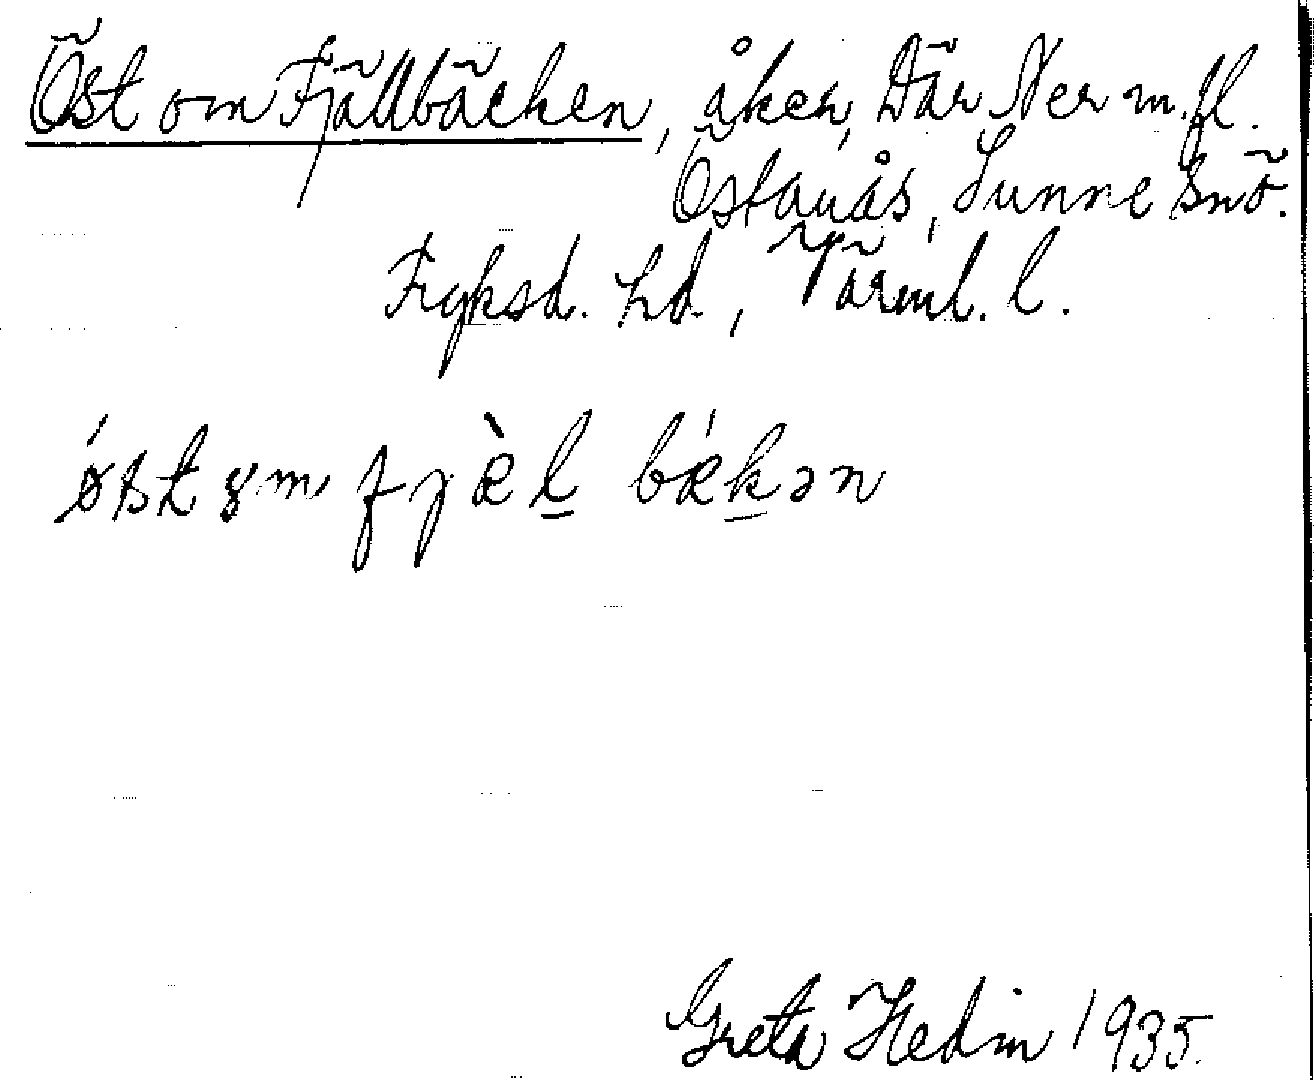 Öst om Fjällbäcken, åker, Där Ner m.fl.
Östanås, Sunne snö.
Fryksd. hd, Värml. l.
øst ɣm fjæ̀l bǽkən
Greta Hedin 1935.